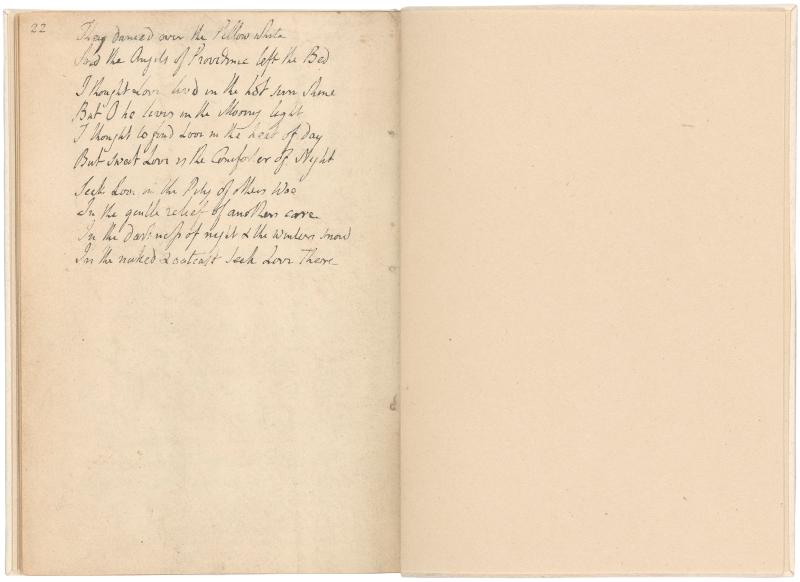 22
They danced over the Pillow white
And the Angels of Providence left the Bed
I thought Love livd in the hot sun shine
But O he lives in the Moony light
I thought to find Love in the heat of day
But sweet Love is the Comforter of Night
Seek Love in the Pity of others Woe
In the gentle relief of anothers care
In the darkness of night & the winters snow
In the naked & outcast Seek Love There